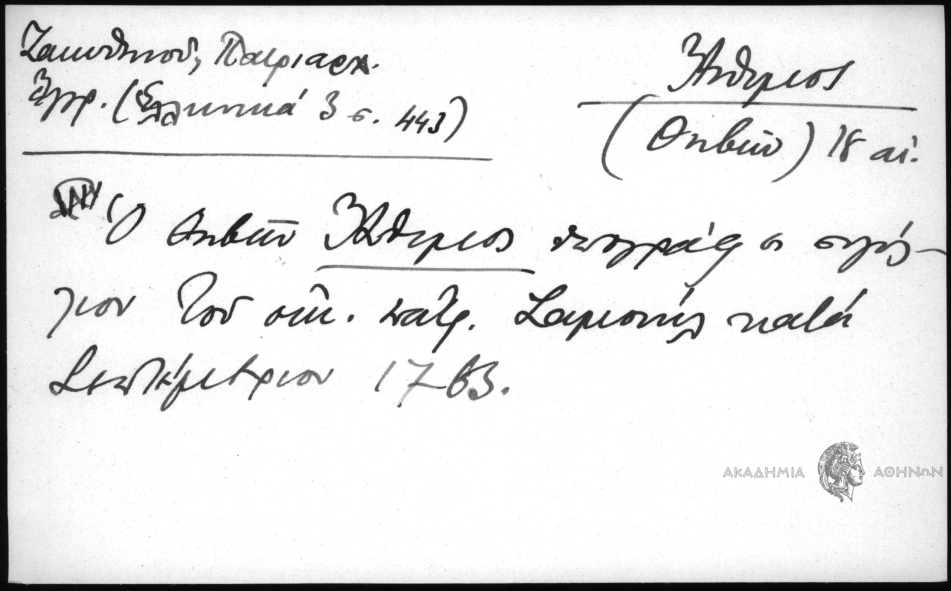 Ζακυθηνοῦ, Πατριαρχ.
Ἔγγρ. (Ἑλληνικά 3 σ. 443)
Ἄνθιμος
(Θηβῶν) 18 αἰ.
Ὁ Θηβῶν Ἄνθιμος ὑπογράφει σιγίλ-
λιον τοῦ οἰκ. πατρ. Σαμουήλ κατά
Σεπτέμβριον 1763.
ΑΚΑΔΗΜΙΑ ΑΘΗΝΩΝ